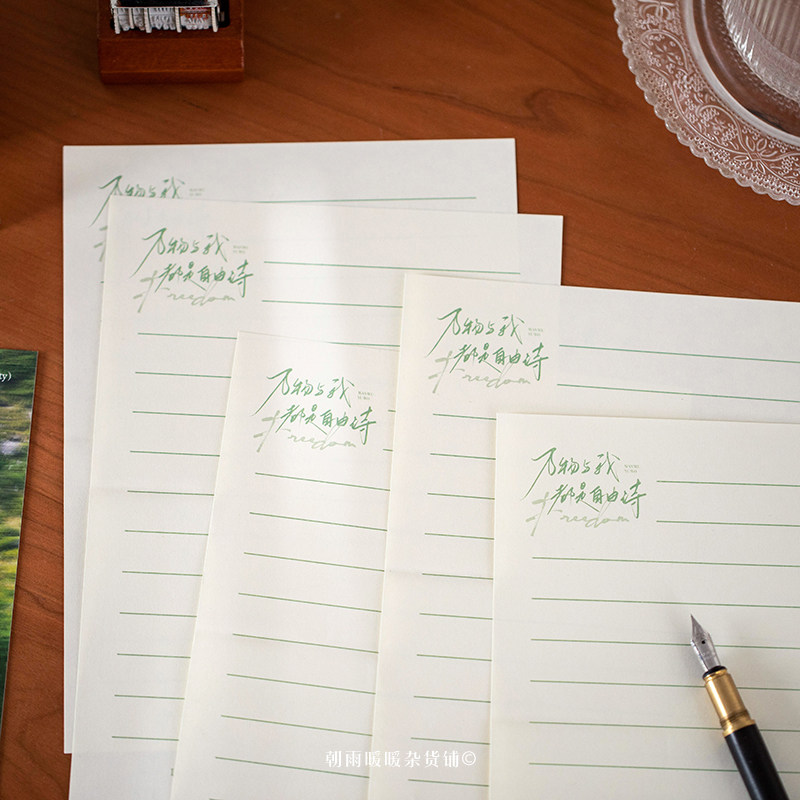 万物与我
万物与我
都是自由诗
Freedom
万物与我
都是自由诗
Freedom
万物与我
都是自由诗
Freedom
万物与我
都是自由诗
Freedom
ty)
朝雨暖暖杂货铺©